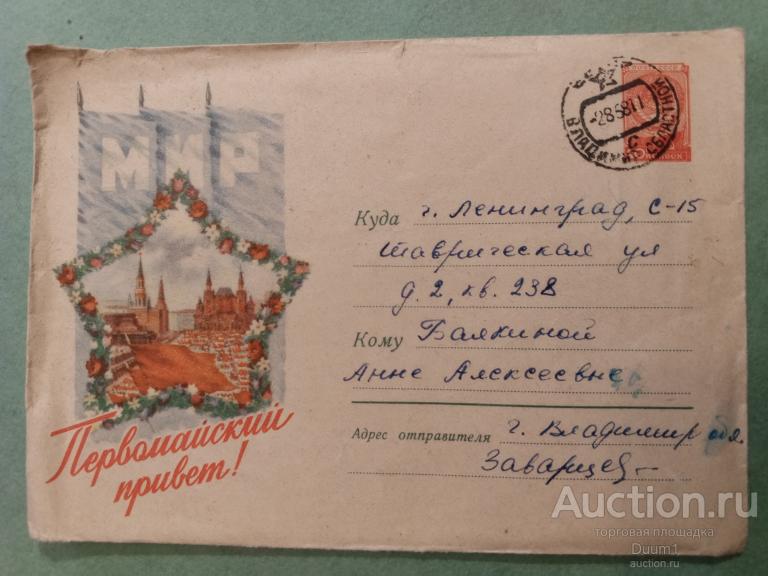 МИР
Первомайский
привет!
-2858 11
ВЛАДИМИР
С
Куда г. Ленинград, С-15
Таврическая ул
д. 2, кв. 238
Кому Баякиной
Анне Алексеевне
Адрес отправителя г. Владимир обл.
Заварцев
Auction.ru
торговая площадка
Duum1
auction.ru